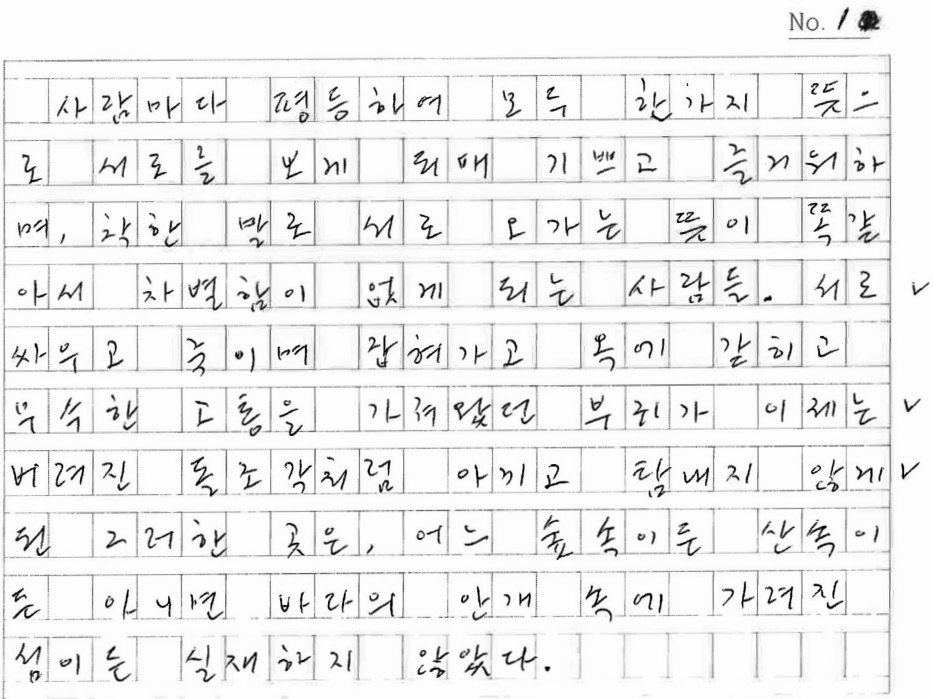 No. 1
사람마다 평등하여 모두 한가지 뜻으
로 서로를 보게 되매 기쁘고 즐거워하
며, 착한 말로 서로 오가는 뜻이 똑같
아서 차별함이 없게 되는 사람들. 서로 ✓
싸우고 죽이며 잡혀가고 옥에 갇히고
무수한 고통을 가져왔던 부귀가 이제는 ✓
버려진 돌조각처럼 아끼고 탐내지 않게 ✓
된 그러한 곳은, 어느 숲속이든 산속이
든 아니면 바다의 안개 속에 가려진
섬이든 실재하지 않았다.